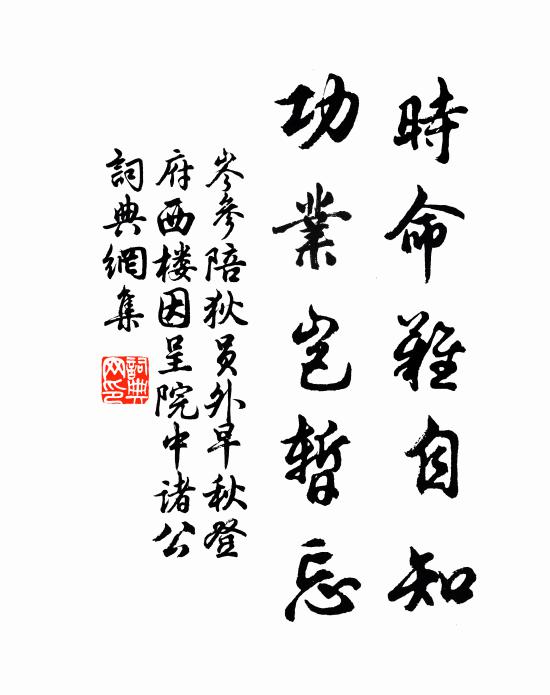 時命難自知
功業岂暫忘
岑參陪狄员外早秋登
府西楼因呈院中諸公
詞典網集
詞典
网印